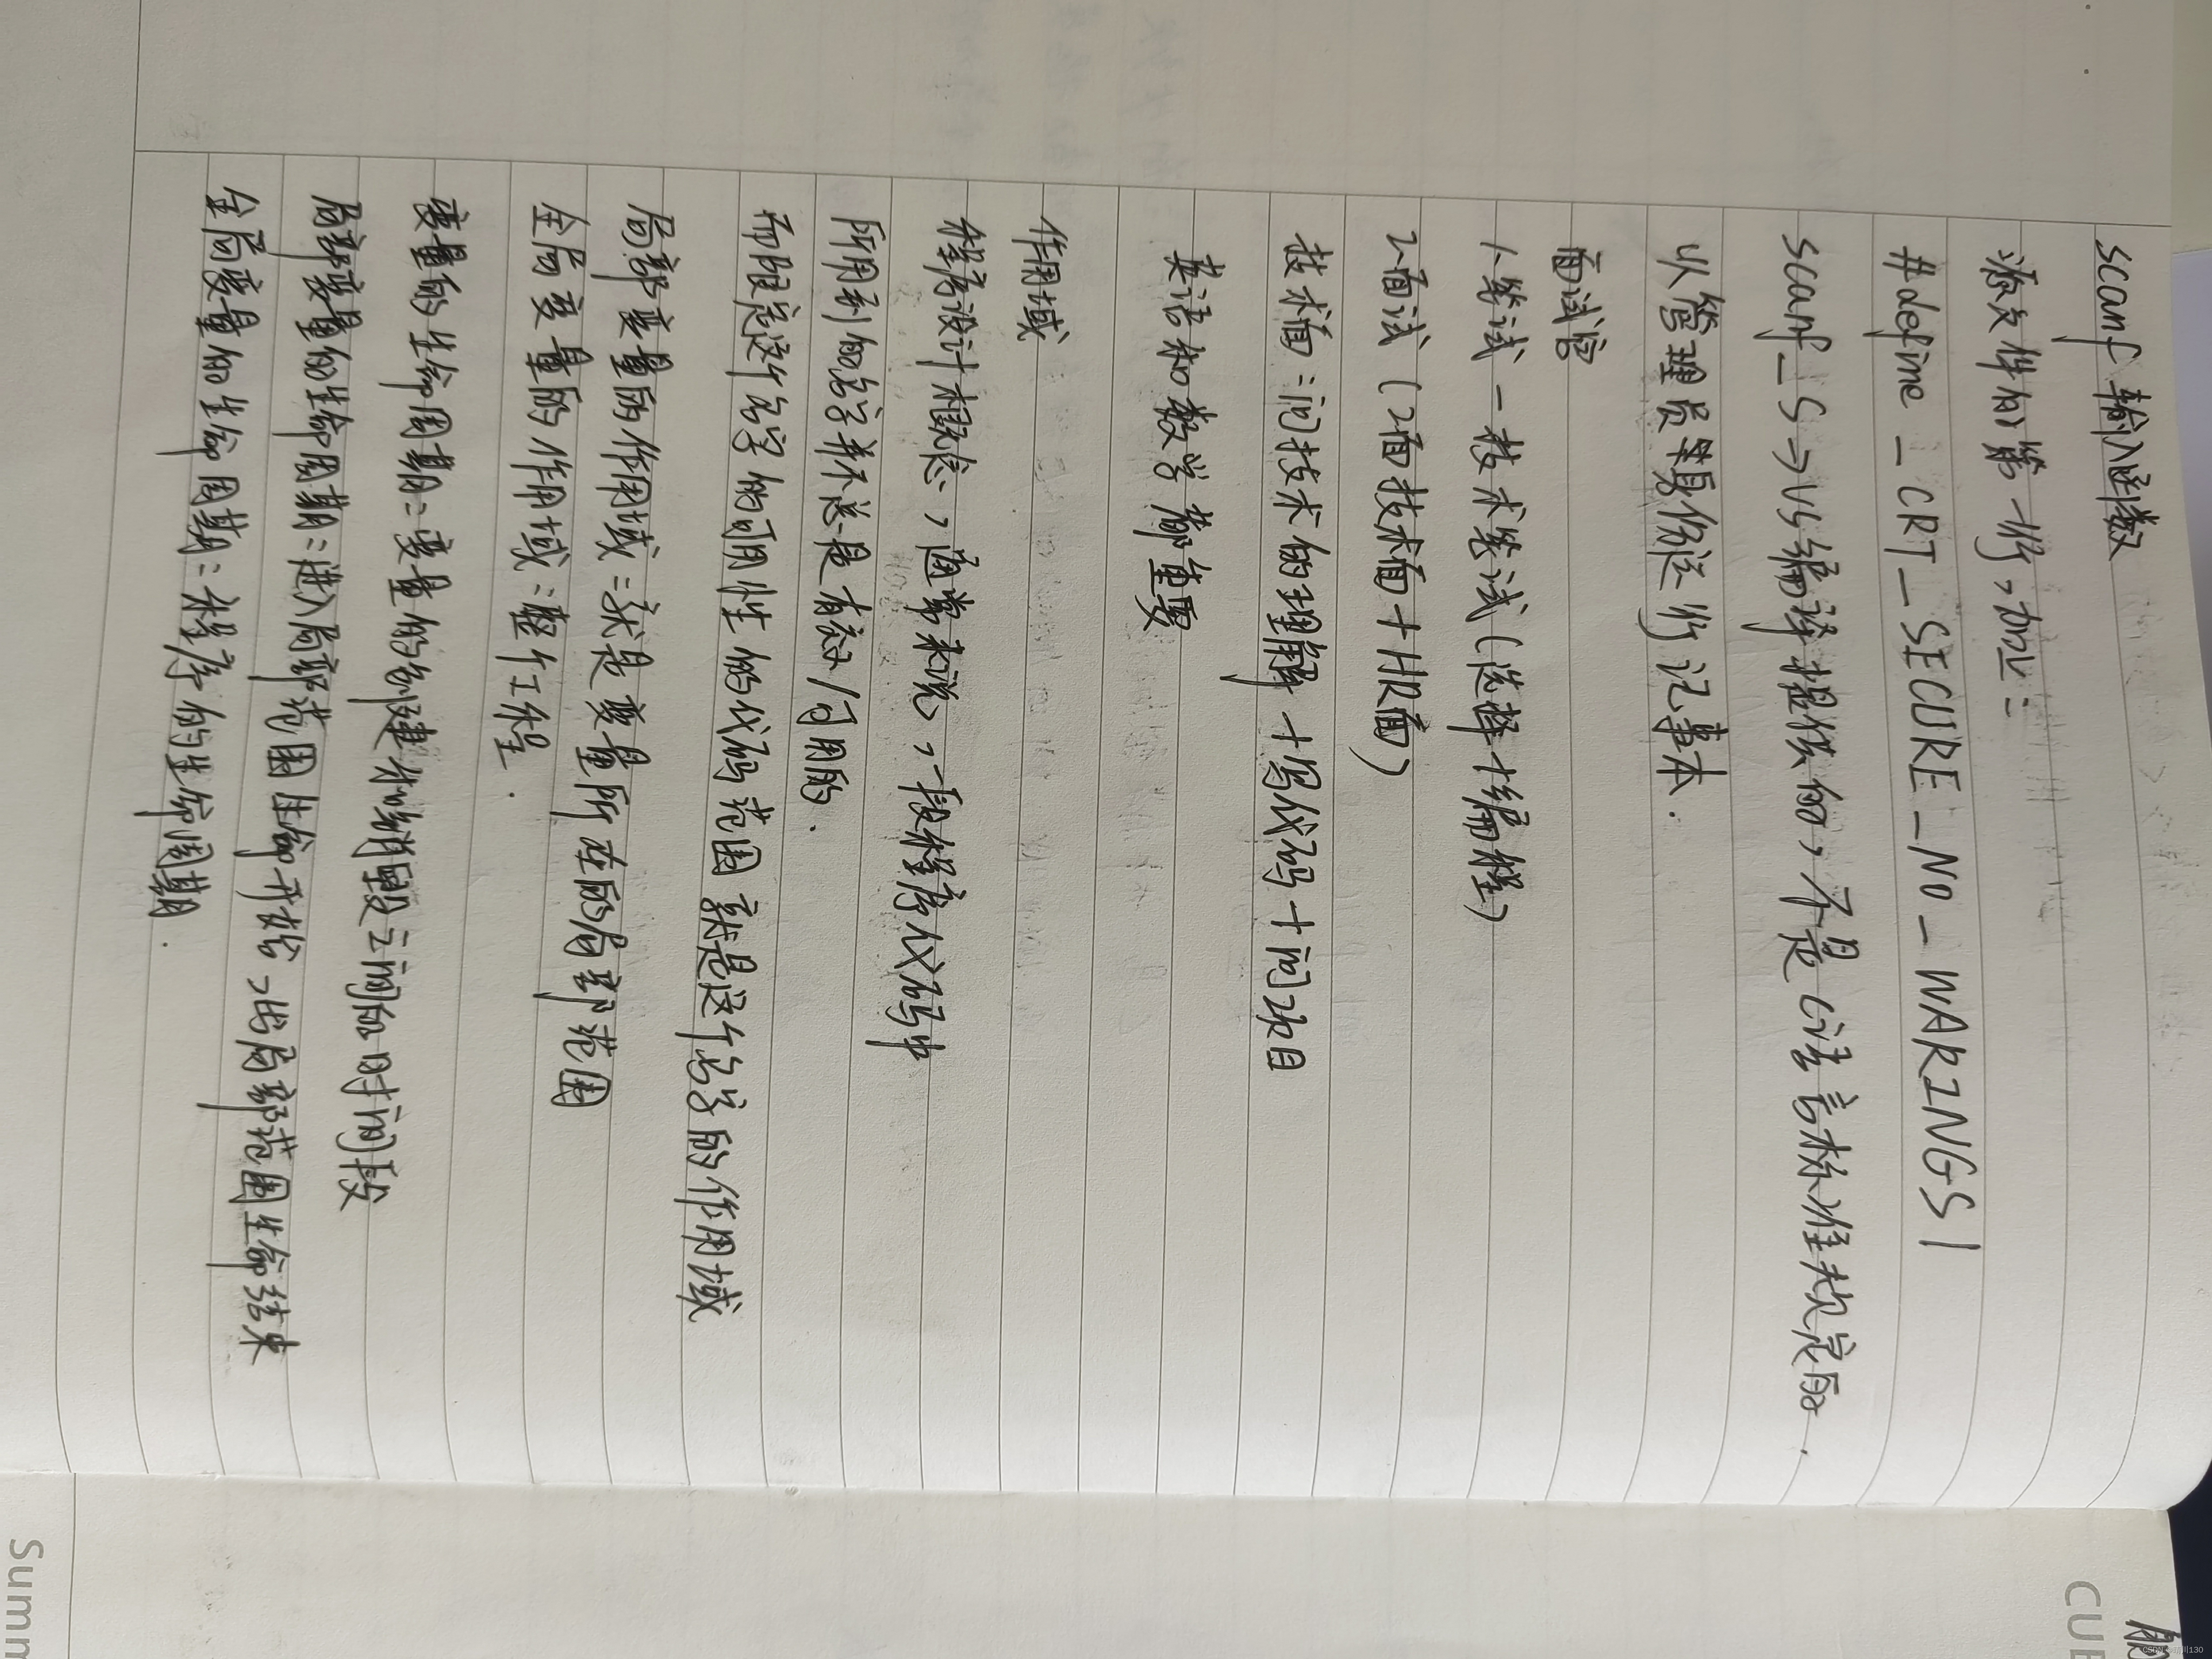 scanf 输入函数
源文件的第一行，加上：
#define _CRT_SECURE_NO_WARINGS 1
scanf_s→VS编译器提供的，不是C语言标准规定的.
以管理员身份运行记事本.
面试官
1、笔试-技术笔试(选择+编程)
2、面试(2面技术面+HR面)
技术面：问技术的理解+写代码+问项目
英语和数学都重要
作用域
程序设计概念，通常来说，一段程序代码中
所用到的名字并不总是有效/可用的.
而限定这个名字的可用性的代码范围就是这个名字的作用域
局部变量的作用域：就是变量所在的局部范围
全局变量的作用域：整个工程.
变量的生命周期：变量的创建和销毁之间的时间段
局部变量的生命周期：进入局部范围生命开始，出局部范围生命结束
全局变量的生命周期：程序的生命周期.
Summ
CUE